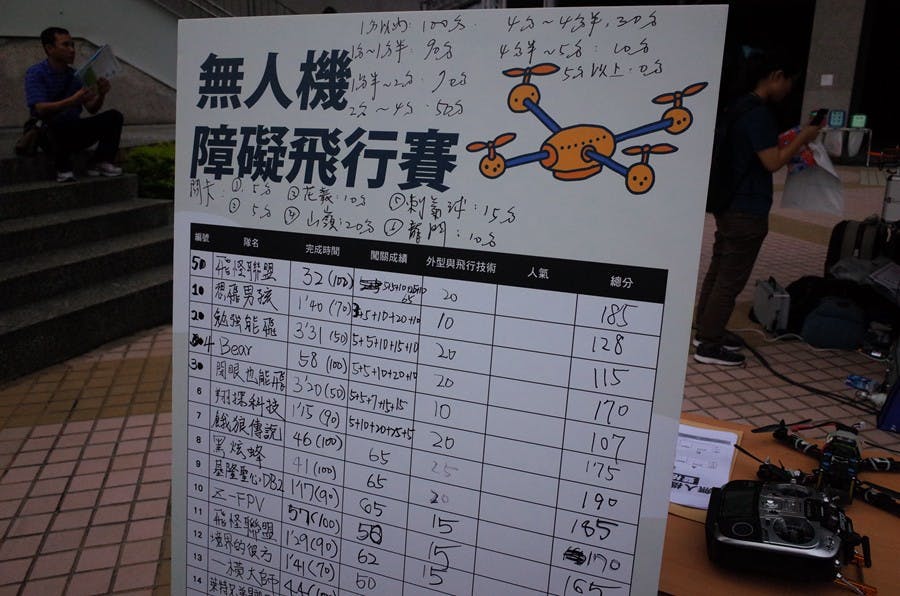 1分以內:100分
4分~4分半,30分
1分~1分半 90分
4分半~5分:10分
1分半~2分:70分
5分以上:0分
2分~4分:50分
無人機
障礙飛行賽
關卡:① 5分 ③花義:10分 ⑤刺蝟球:15分
② 5分 ④山嶺:20分 ⑥龍門:10分
編號 隊名 完成時間 闖關成績 外型與飛行技術 人氣 總分
50 飛怪聯盟 32(100) 65 20 185
10 思飛男孩 1'40(70) 5+10+20+10 10 128
20 勉強能飛 3'31(50) 5+5+10+15+10 20 115
4 Bear 58(100) 5+5+10+20+10 20 170
30 閉眼也能飛 3'20(50) 5+5+7+15+15 10 107
6 翔探科技 1'15(90) 5+10+20+25+5 20 175
7 餓狼傳說 46(100) 65 25 190
8 黑炫蜂 41(100) 65 20 185
9 基隆聖心DB2 1'17(90) 65 15 170
10 五一FPV 57(100) 50 15 165
11 飛怪聯盟 1'29(90) 62 15
12 境界的彼方 1'41(70) 50
13 一橫大師 44(100)
14